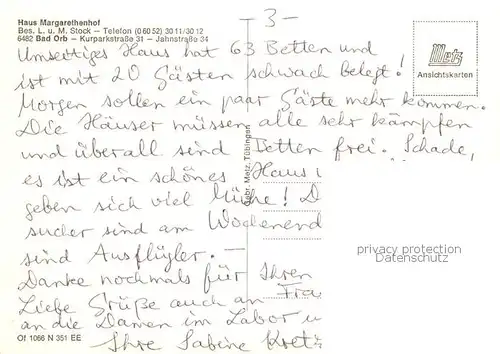 Haus Margarethenhof
Bes. L. u. M. Stock – Telefon (0 60 52) 30 11 / 30 12
6482 Bad Orb – Kurparkstraße 31 – Jahnstraße 34
- 3 -
Metz
Ansichtskarten
Umseitiges Haus hat 63 Betten und
ist mit 20 Gästen schwach belegt!
Morgen sollen ein paar Gäste mehr kommen.
Die Häuser müssen alle sehr kämpfen
und überall sind Betten frei. Schade,
es ist ein schönes Haus
geben sich viel Mühe! D
sucher sind am Wochenend
sind Ausflügler. –
Danke nochmals für Ihren
Liebe Grüße auch an Frau
an die Damen im Labor u
Ihre Sabine Kretz
Gebr. Metz, Tübingen
privacy protection
Datenschutz
Of 1066 N 351 EE